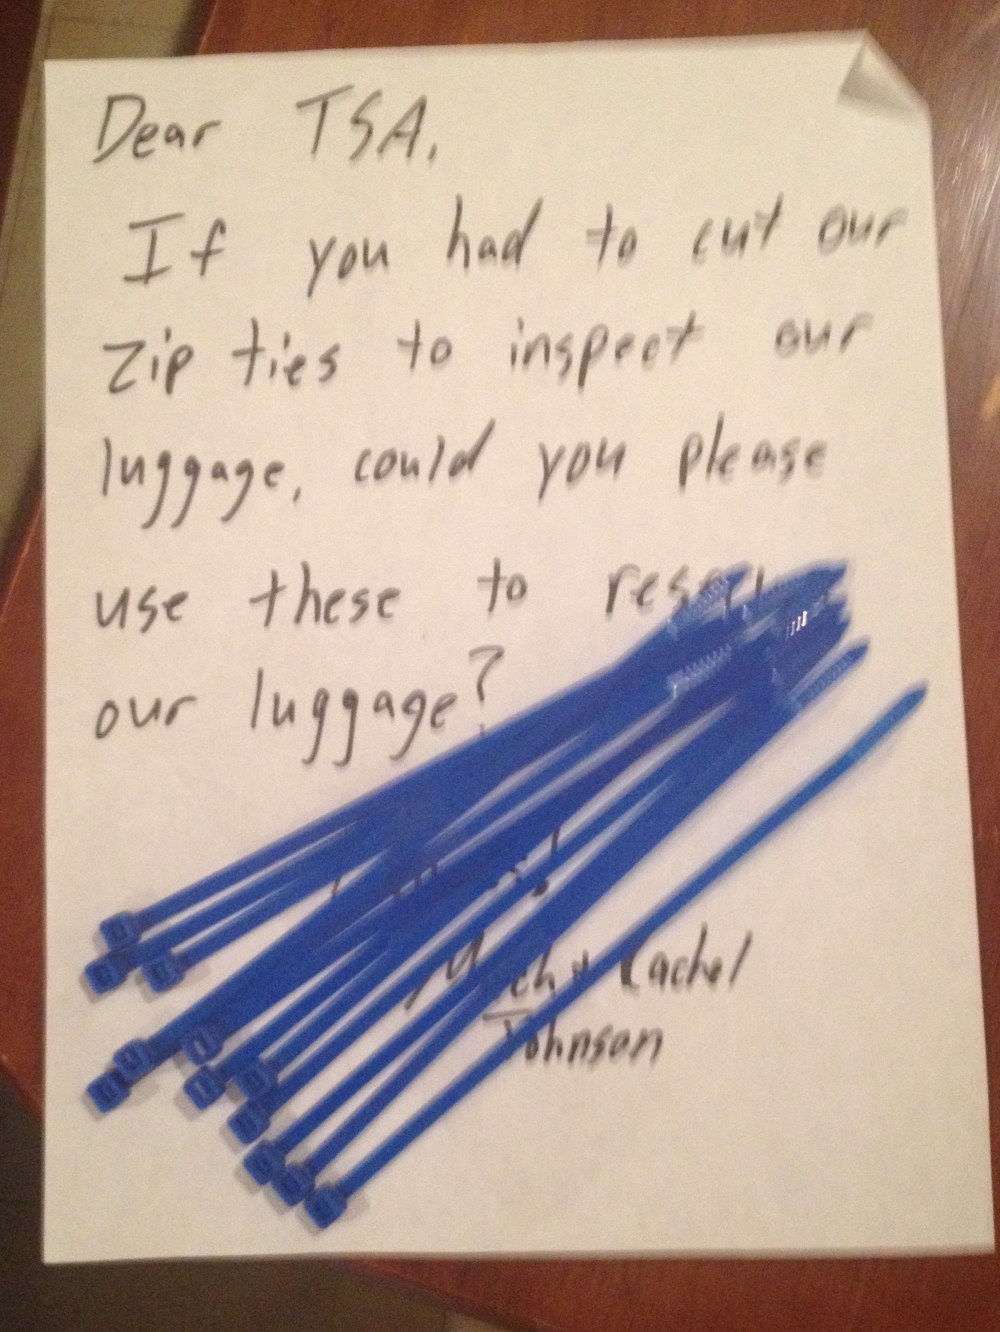 Dear TSA,
If you had to cut our
zip ties to inspect our
luggage, could you please
use these to
our luggage?
Rachel
Johnson